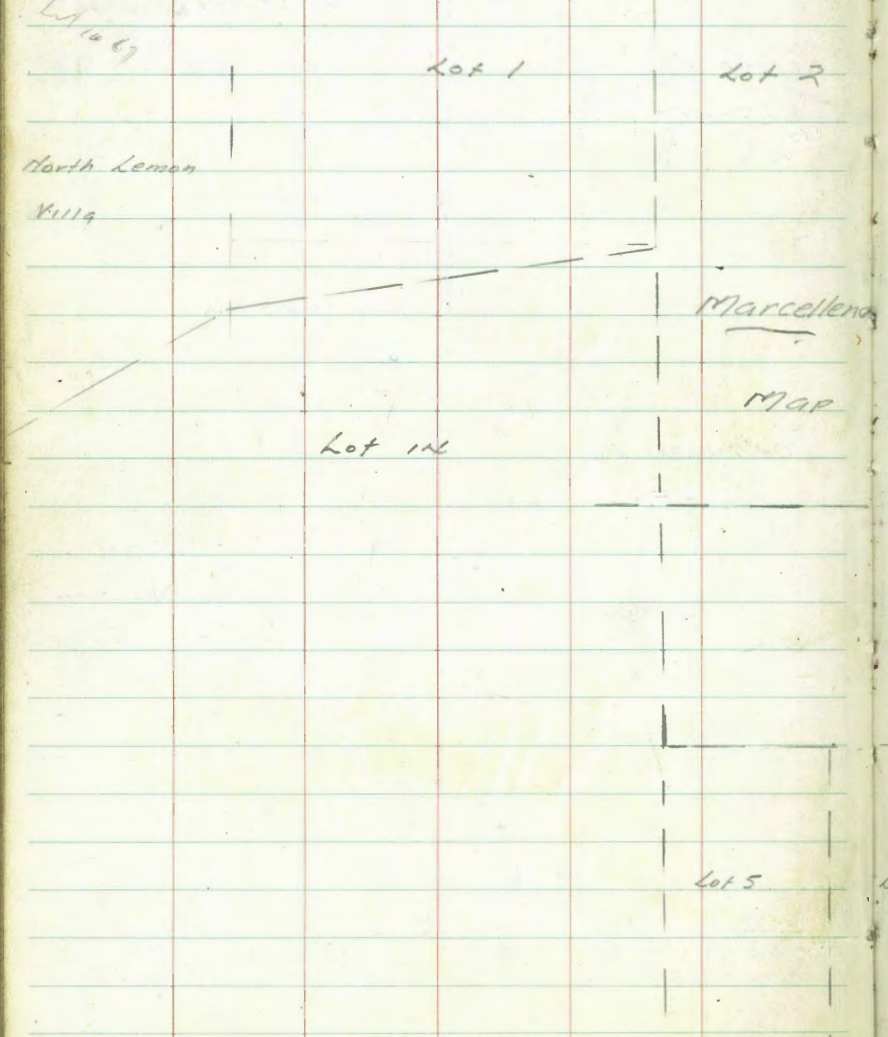 Lot
Lot 1
Lot 2
North Lemon
Villa
Marcellena
Map
Lot 14
Lot 5